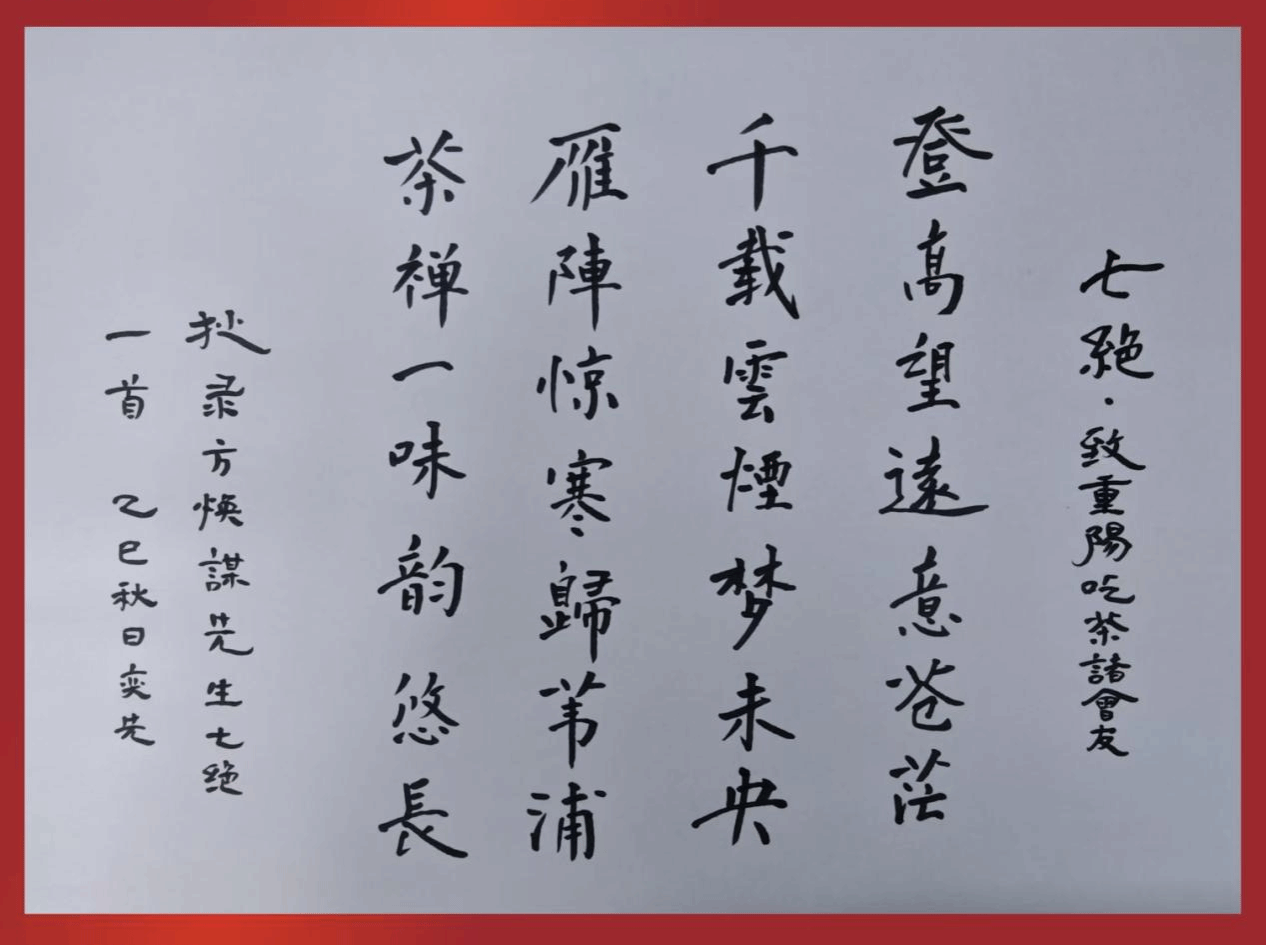 七絶·致重陽吃茶諸會友
登高望遠意苍茫
千載雲煙梦未央
雁陣惊寒歸苇浦
茶禅一味韵悠長
抄录方焕謀先生七绝
一首 乙巳秋日奕先